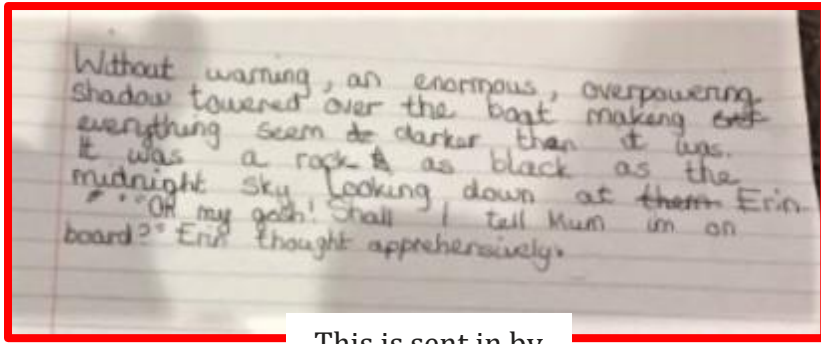 Without warning, an enormous, overpowering
shadow towered over the boat making
everything seem darker than it was.
It was a rock as black as the
midnight sky looking down at them Erin
"OH my gosh! Shall I tell Mum im on
board?" Erin thought apprehensively.
This is sent in by